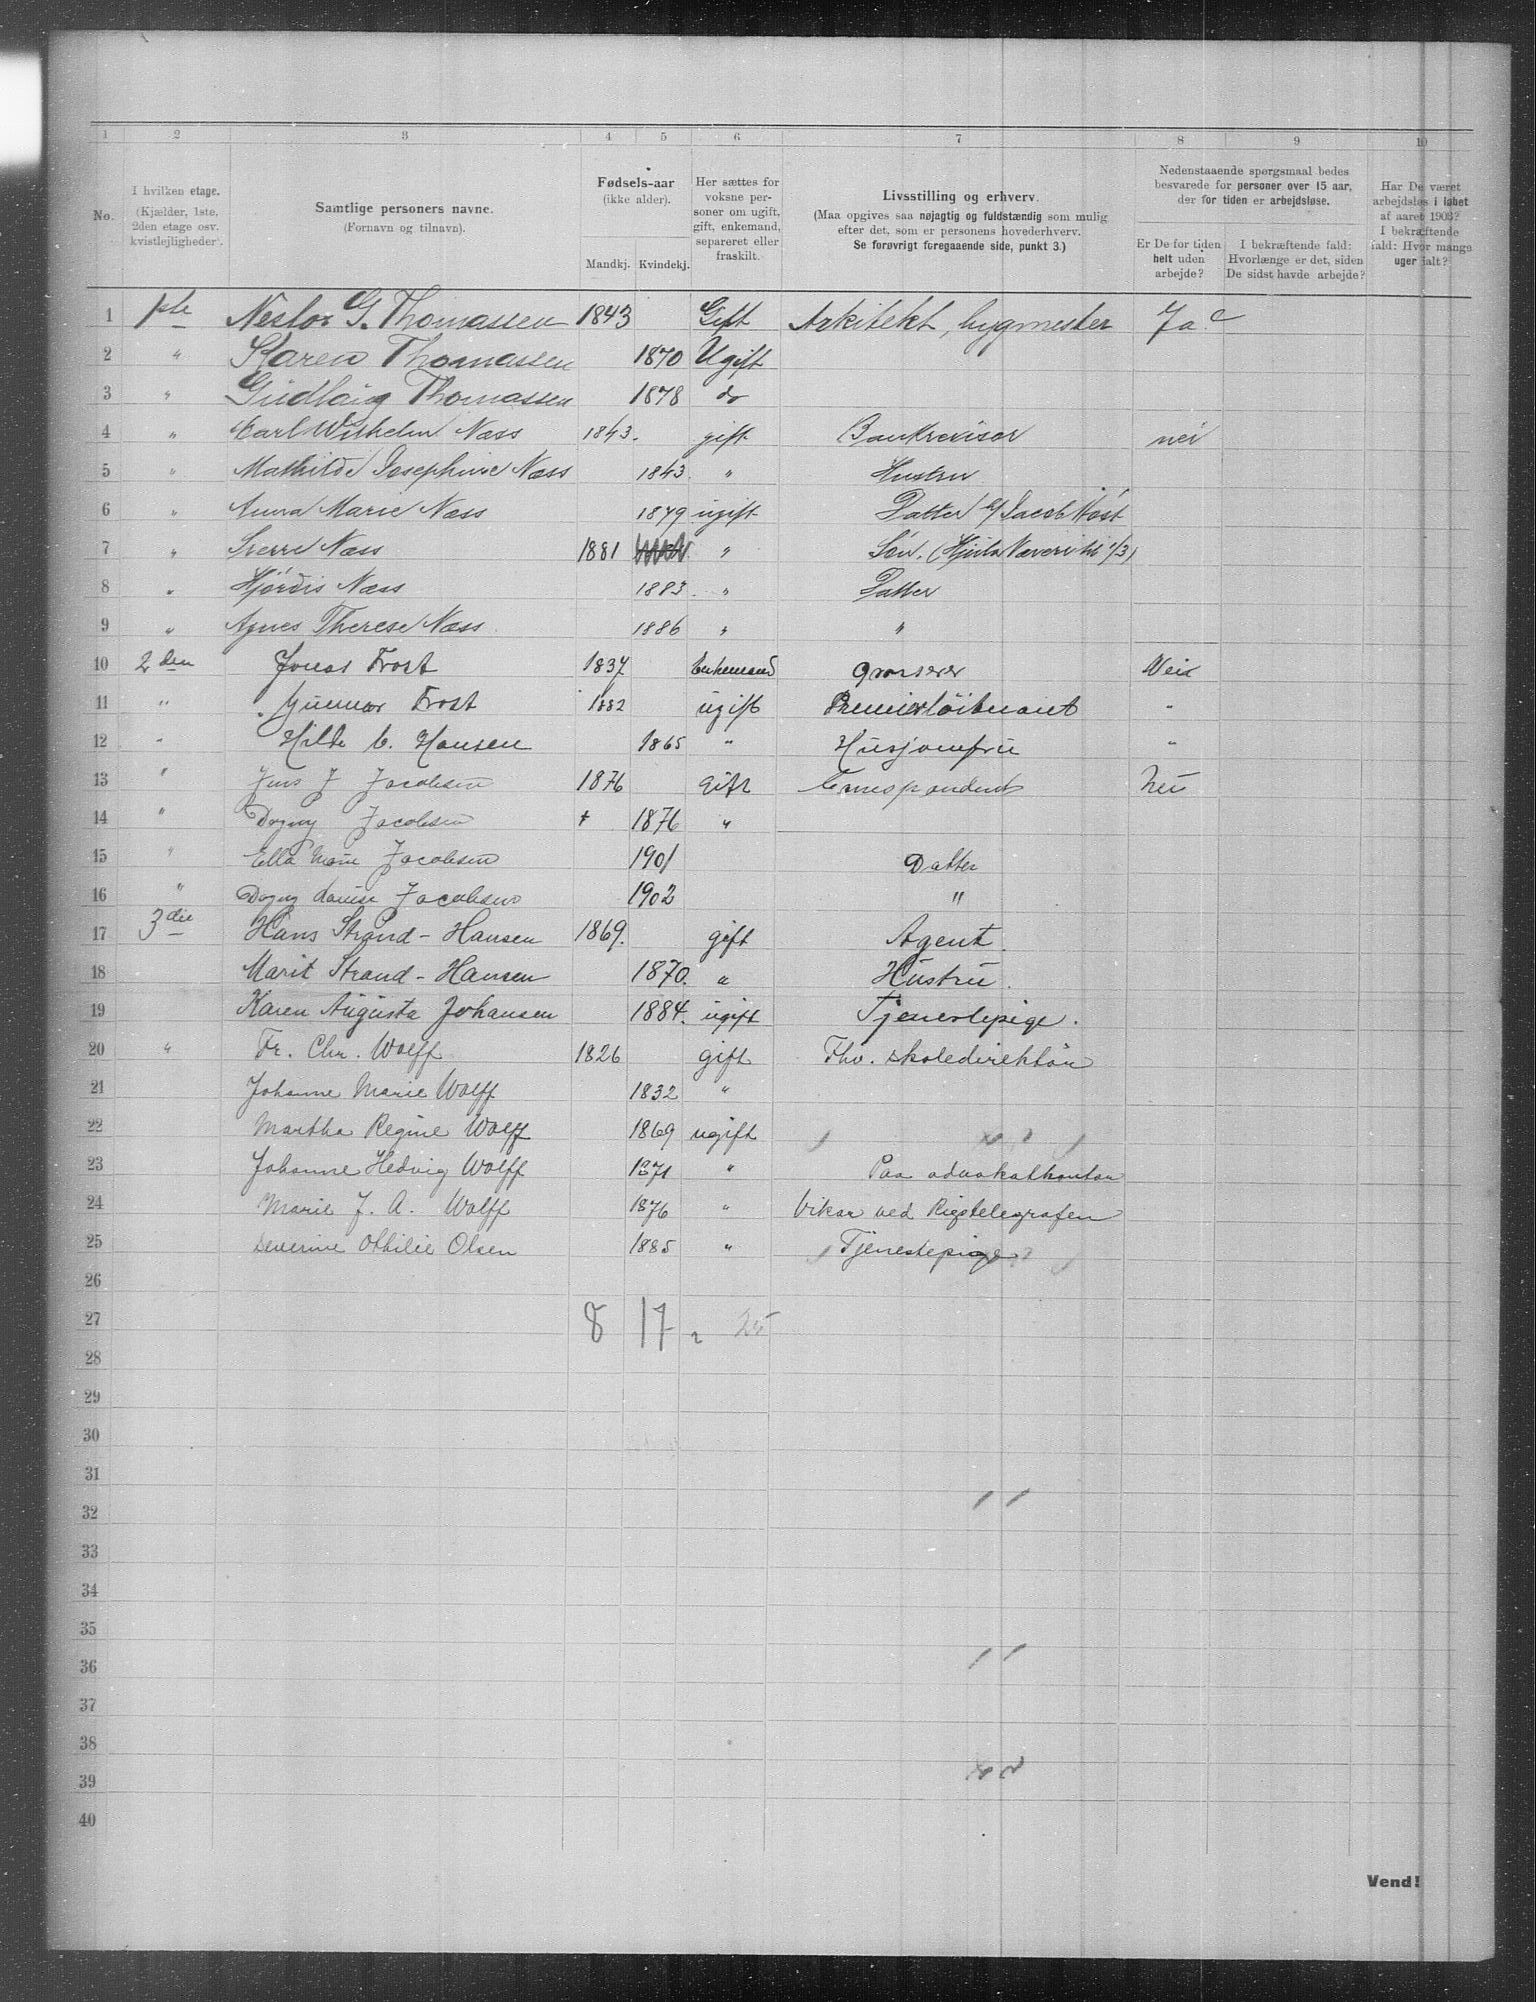 1 2 3 4 5 6 7 8 9 10
No.
I hvilken etage.
(Kjælder, 1ste,
2den etage osv.
kvistlejligheder).
Samtlige personers navne.
(Fornavn og tilnavn).
Fødsels-aar
(ikke alder).
Mandkj. Kvindekj.
Her sættes for
voksne per-
soner om ugift,
gift, enkemand,
separeret eller
fraskilt.
Livsstilling og erhverv.
(Maa opgives saa nøjagtig og fuldstændig som mulig
efter det, som er personens hovederhverv.
Se forøvrigt foregaaende side, punkt 3.)
Nedenstaaende spørgsmaal bedes
besvarede for personer over 15 aar,
der for tiden er arbejdsløse.
Er De for tiden
helt uden
arbejde?
I bekræftende fald:
Hvorlænge er det, siden
De sidst havde arbejde?
Har De været
arbejdsløs i løbet
af aaret 1903?
I bekræftende
fald: Hvor mange
uger ialt?
1 1ste Nestor G. Thomassen 1843 Gift Arkitekt, bygmester Ja
2 " Karen Thomassen 1870 Ugift
3 " Gudlaug Thomassen 1878 do
4 " Carl Wilhelm Næss 1843. gift Bankrevisor nei
5 " Mathilde Josephine Næss 1843. " Hustru
6 " Anna Marie Næss 1879 ugift Datter Jacob
7 " Sverre Næss 1881 " Søn.
8 " Hjørdis Næss 1883. " Datter
9 " Agnes Therese Næss 1886 " "
10 2den Jonas Frost 1837 Enkemand Grosserer Nei
11 " Gunnar Frost 1882 ugift Premierløitnant "
12 " Hilda C. Hansen 1865 " Husjomfru "
13 " Jens J Jacobsen 1876 Gift Correspondent Nei
14 " Dagny Jacobsen + 1876 "
15 " Ella Marie Jacobsen 1901 Datter
16 " Dagny Louise Jacobsen 1902 "
17 3die Hans Strand-Hansen 1869. gift Agent.
18 Marit Strand-Hansen 1870. " Hustru.
19 Karen Augusta Johansen 1884. ugift Tjenestepige.
20 " Fr. Chr. Wolff 1826 gift Fhv. skoledirektør
21 Johanne Marie Wolff 1832 "
22 Martha Regine Wolff 1869 ugift
23 Johanne Hedvig Wolff 1871 " Paa advokatkontor
24 Marie J. A. Wolff 1876 " Vikar ved Rigstelegrafen
25 Severine Othilie Olsen 1885 " Tjenestepige
26
27 8 17 25
28
29
30
31
32
33
34
35
36
37
38
39
40
Vend!